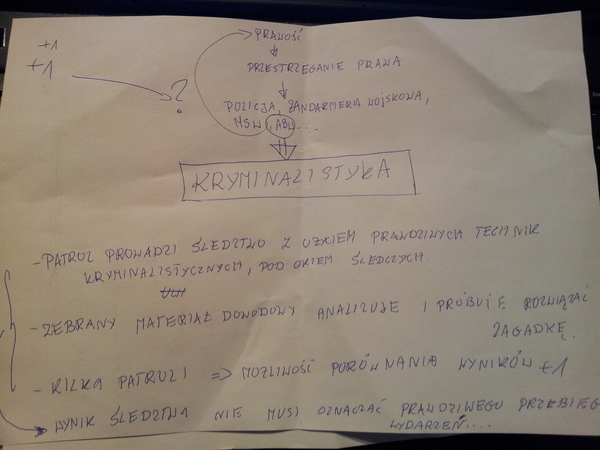 +1
+1
?
PRAWOŚĆ
PRZESTRZEGANIE PRAWA
POLICJA, ŻANDARMERIA WOJSKOWA,
MSW, ABW...
KRYMINALISTYKA
- PATROL PROWADZI ŚLEDZTWO Z UŻYCIEM PRAWDZIWYCH TECHNIK
KRYMINALISTYCZNYCH, POD OKIEM ŚLEDCZYCH
- ZEBRANY MATERIAŁ DOWODOWY ANALIZUJE I PRÓBUJE ROZWIĄZAĆ
ZAGADKĘ.
- KILKA PATROLI => MOŻLIWOŚĆ PORÓWNANIA WYNIKÓW +1
WYNIK ŚLEDZTWA NIE MUSI OZNACZAĆ PRAWDZIWEGO PRZEBIEG
WYDARZEŃ....